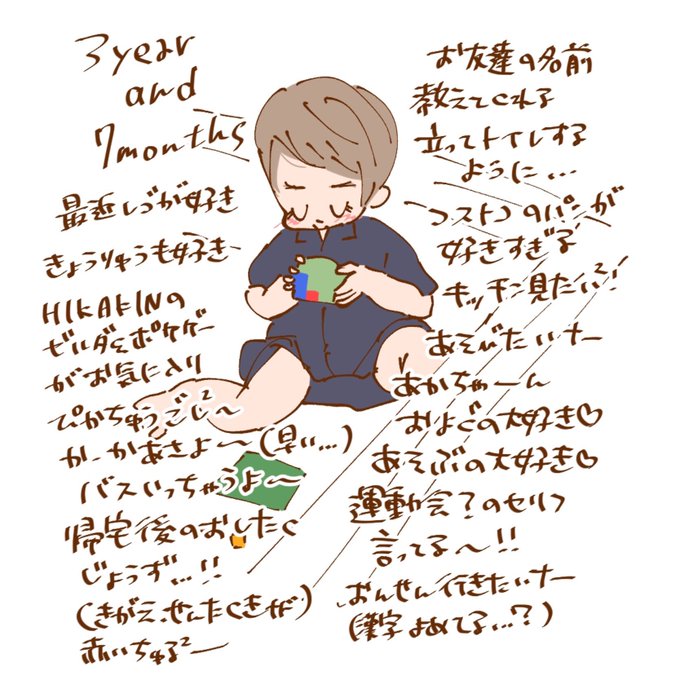 3 year
and
7months
最近レゴが好き
きょうりゅうも好き
HIKAKINの
ゼルダとポケゲー
がお気に入り
ぴかちゅうごし²〜
かーかあさよ〜(早い...)
バスいっちゃうよ〜
帰宅後のおしたく
じょうず...!!
(きがえ、せんたくきが)
赤いちゅる²ー
お友達の名前
教えてくれる
立ってトイレする
ように...
コストコのパンが
好きすぎる
キッチン見たい!
あそびたいナー
あかちゃーん
およぐの大好き♡
あそぶの大好き♡
運動会?のセリフ
言ってる〜!!
おんせん行きたいナー
(漢字よめてる...?)